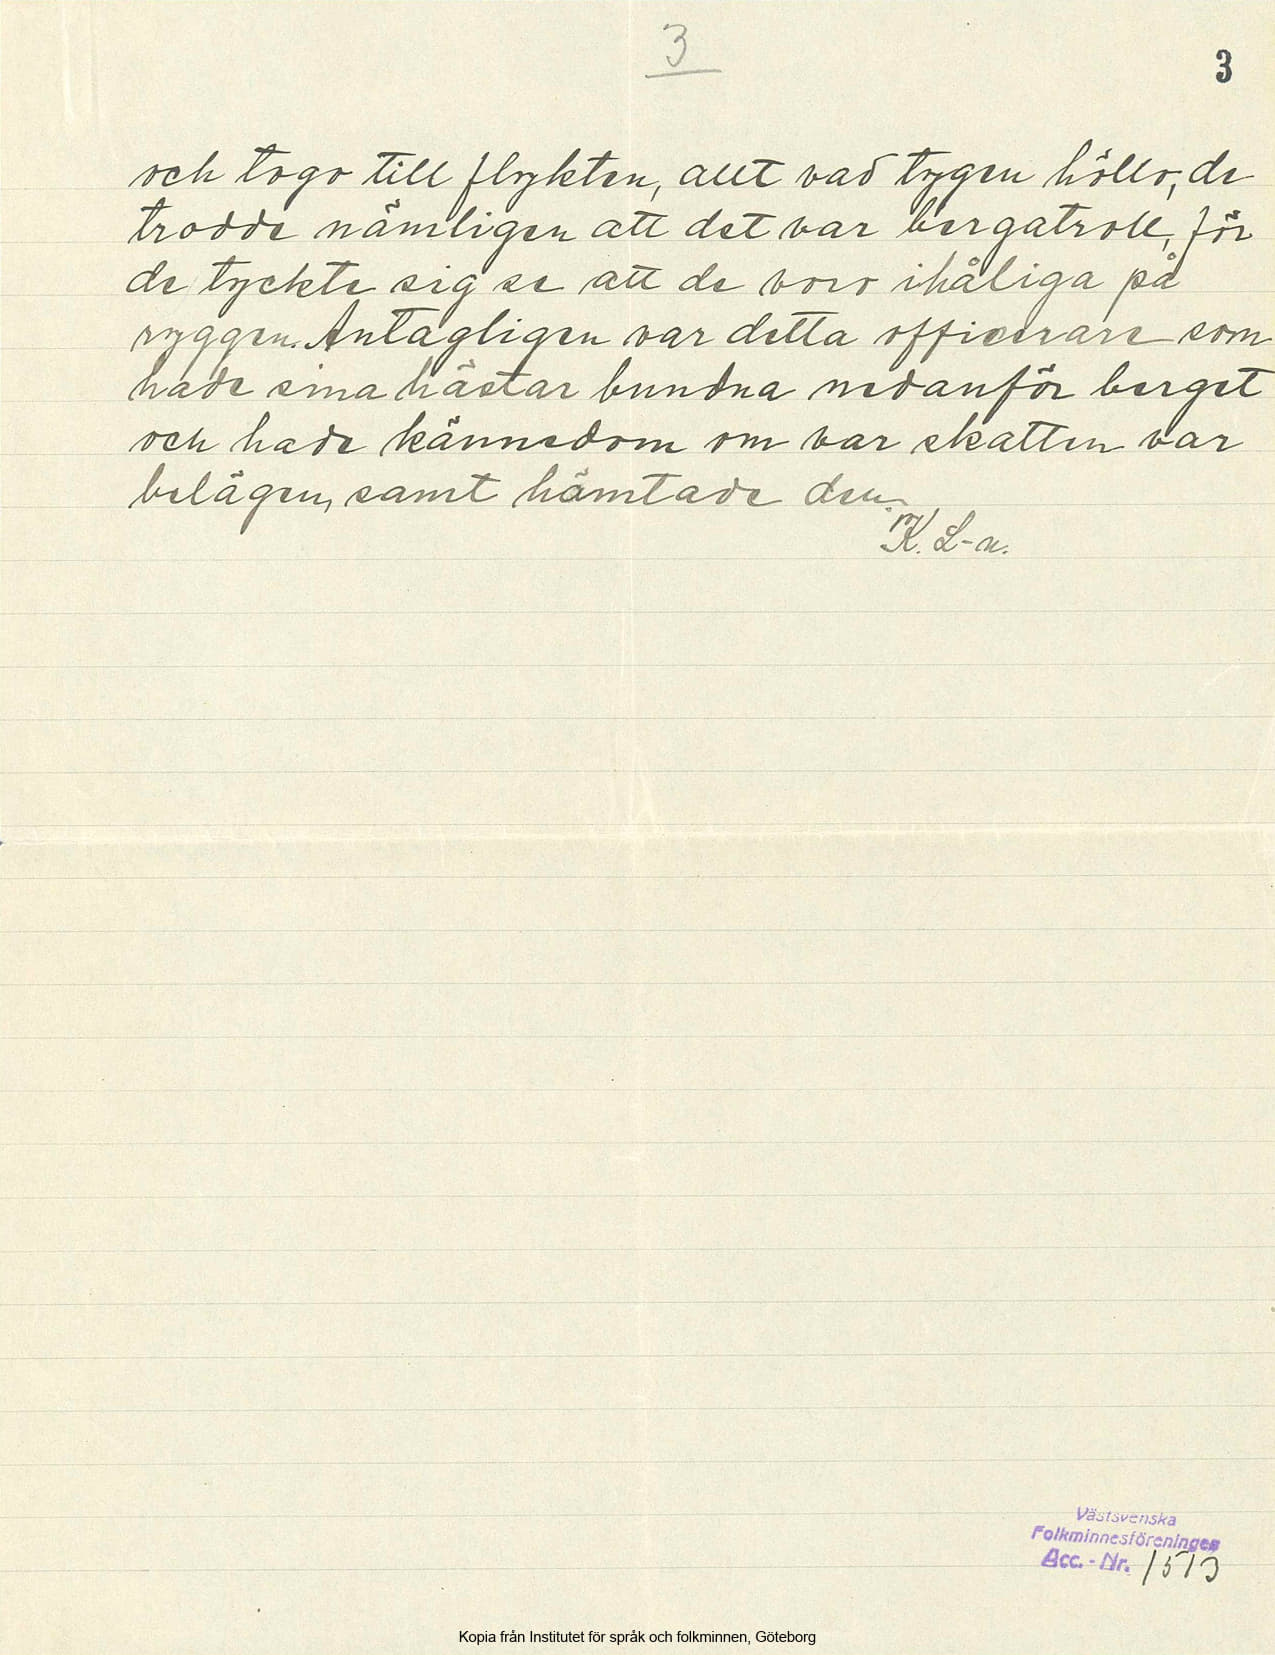 3
3
och togo till flykten, allt vad tygen höllo, de
trodde nämligen att det var bergatroll, för
de tyckte sig se att de voro ihåliga på
ryggen. Antagligen var detta officerare som
hade sina hästar bundna nedanför berget
och hade kännedom om var skatten var
belägen, samt hämtade den.
K. L-n.
Västsvenska
Folkminnesföreningen
Acc. - Nr. 1513
Kopia från Institutet för språk och folkminnen, Göteborg